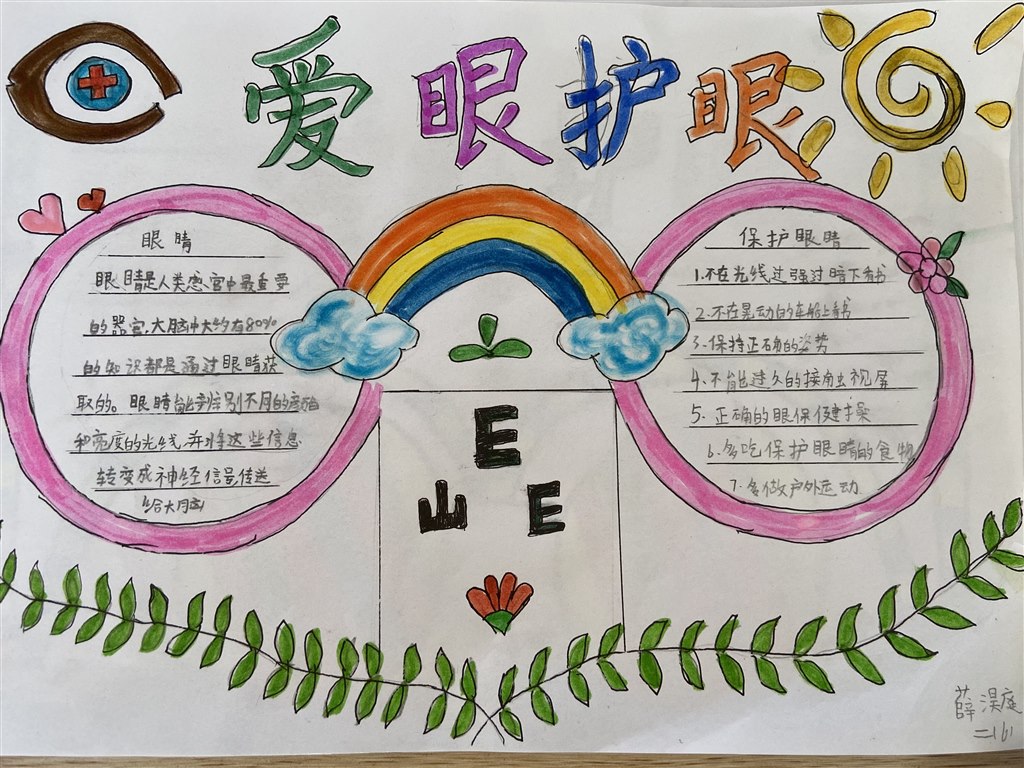 爱眼护眼
眼睛
眼睛是人类感官中最重要
的器官,大脑中大约有80%
的知识都是通过眼睛获
取的。眼睛能辨别不同的颜色
和亮度的光线,并将这些信息
转变成神经信号传送
给大脑
E
E E
保护眼睛
1.不在光线过强过暗下看书
2.不在晃动的车船上看书
3.保持正确的姿势
4.不能过久的接触电视屏
5.正确的眼保健操
6.多吃保护眼睛的食物
7.多做户外运动
薛淏庭